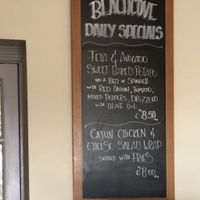 DAILY SPECIALS
FETA & AVOCADO
SWEET BAKED POTATO
ON A BED OF SPINACH
WITH RED ONION, TOMATO,
MIXED PEPPERS DRIZZLED
WITH OLIVE OIL
£8.50
CAJUN CHICKEN &
CHEESE SALAD WRAP
SERVED WITH FRIES
£8.00